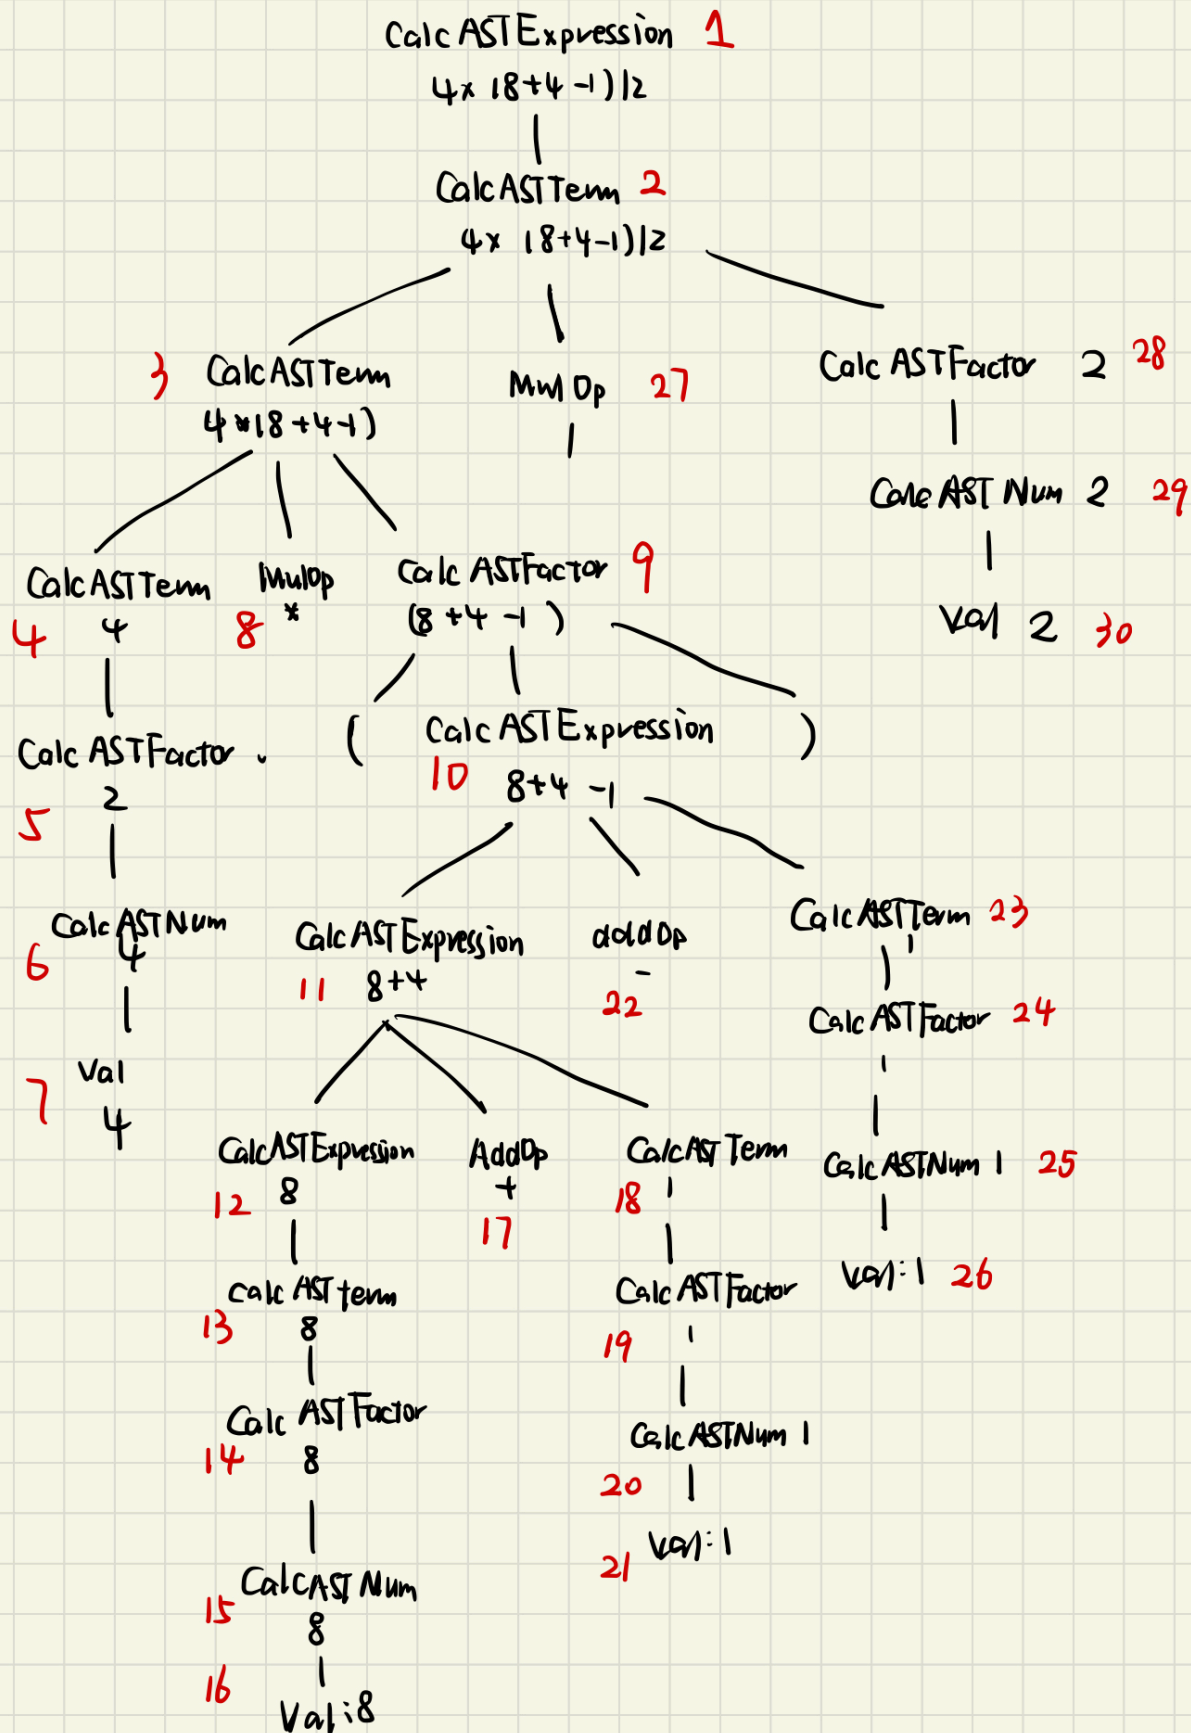 CalcASTExpression 1
4× (8+4-1)/2
CalcASTTerm 2
4× (8+4-1)/2
3 CalcASTTerm
4*(8+4-1)
MulOp 27
CalcASTFactor 2 28
CalcASTNum 2 29
Val 2 30
CalcASTTerm
4 4
MulOp
8 *
CalcASTFactor 9
(8+4-1)
CalcASTFactor .
5 2
( CalcASTExpression )
10 8+4-1
CalcASTNum
6 4
Val
7 4
CalcASTExpression
11 8+4
addOp
-
22
CalcASTTerm 23
1
CalcASTFactor 24
1
CalcASTNum 1 25
Val:1 26
CalcASTExpression
12 8
AddOp
+
17
CalcASTTerm
18 1
CalcASTterm
13 8
CalcASTFactor
19 1
CalcASTFactor
14 8
CalcASTNum 1
20
21 Val:1
CalcASTNum
15 8
16
Val:8